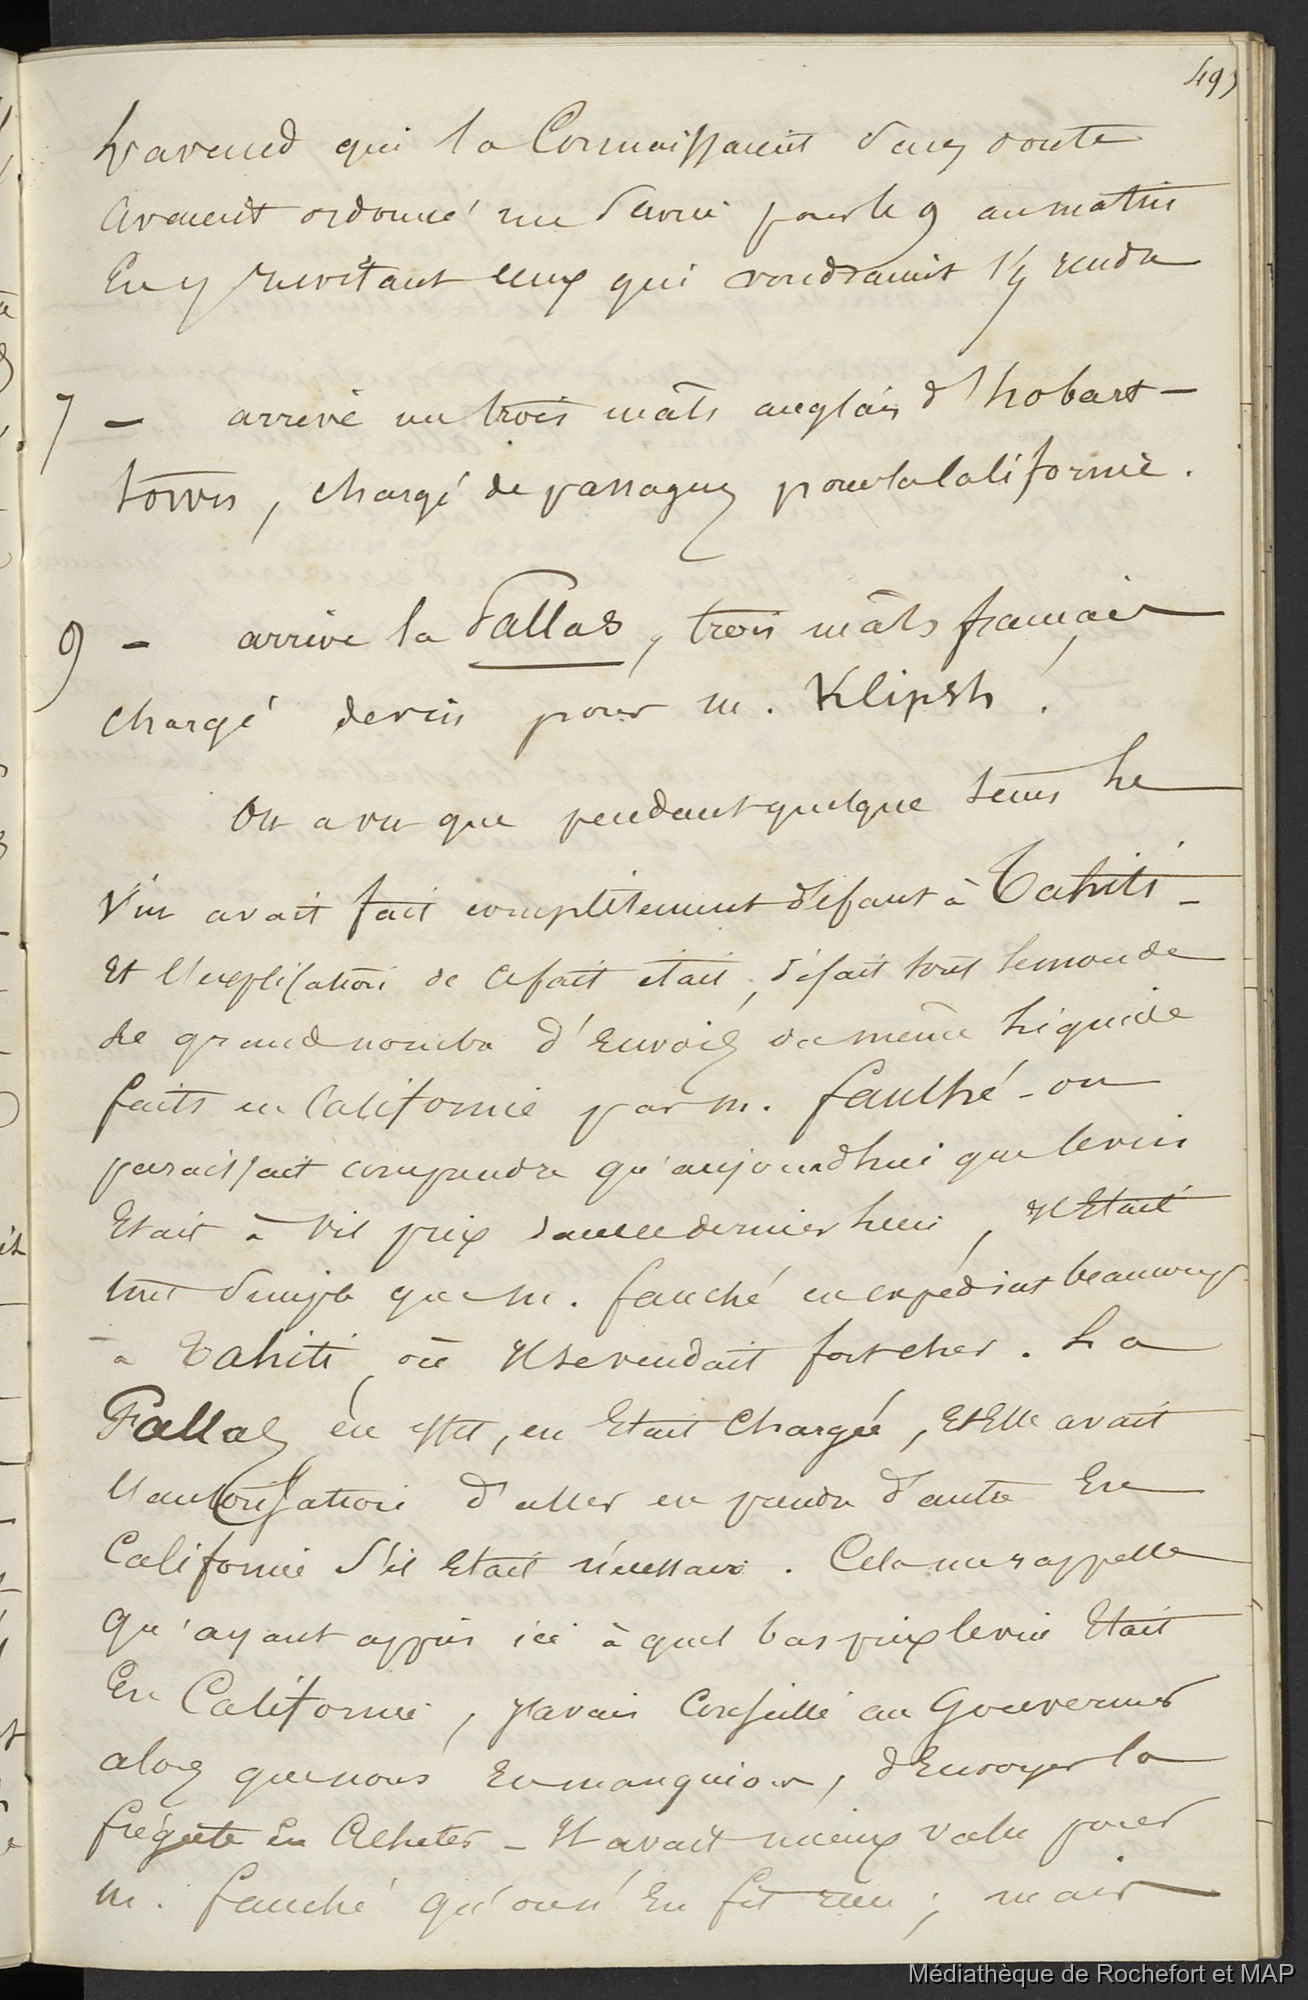 495
travend qui la Connaissaient sans doute
avaient ordonné une Série pour le 9 au matin
En y invitant ceux qui voudraient s'y rendre
7 - arrivé un trois mâts anglais d'hobart-
town, chargé de passagers pour la Californie.
9 - arrive la Pallas, trois mâts français
chargé de vin pour m. Klipsh.
On a vu que pendant quelque tems le
Vin avait fait complètement défaut à Tahiti -
Et l'explication de ce fait était, disait tout le monde
le grand nombre d'Envois du même liquide
faits en Californie par m. fauché - on
paraissait comprendre qu'aujourdhui que le vin
Etait à vil prix dans ce dernier lieu, il Etait
tout simple que m. fauché en expédiat beaucoup
à Tahiti, où il se vendait fort cher. La
Pallas en effet, en Etait Chargée, Et Elle avait
l'autorisation d'aller en prendre d'autre En
Californie S'il Etait nécessaire. Cela me rappelle
qu'ayant appris ici à quel bas prix le vin Etait
En Californie, j'avais Conseillé au Gouverneur
alors que nous En manquions, d'Envoyer la
frégate En Acheter - Il avait mieux valu pour
m. fauché qu'on n'En fit rien; mais
Médiathèque de Rochefort et MAP